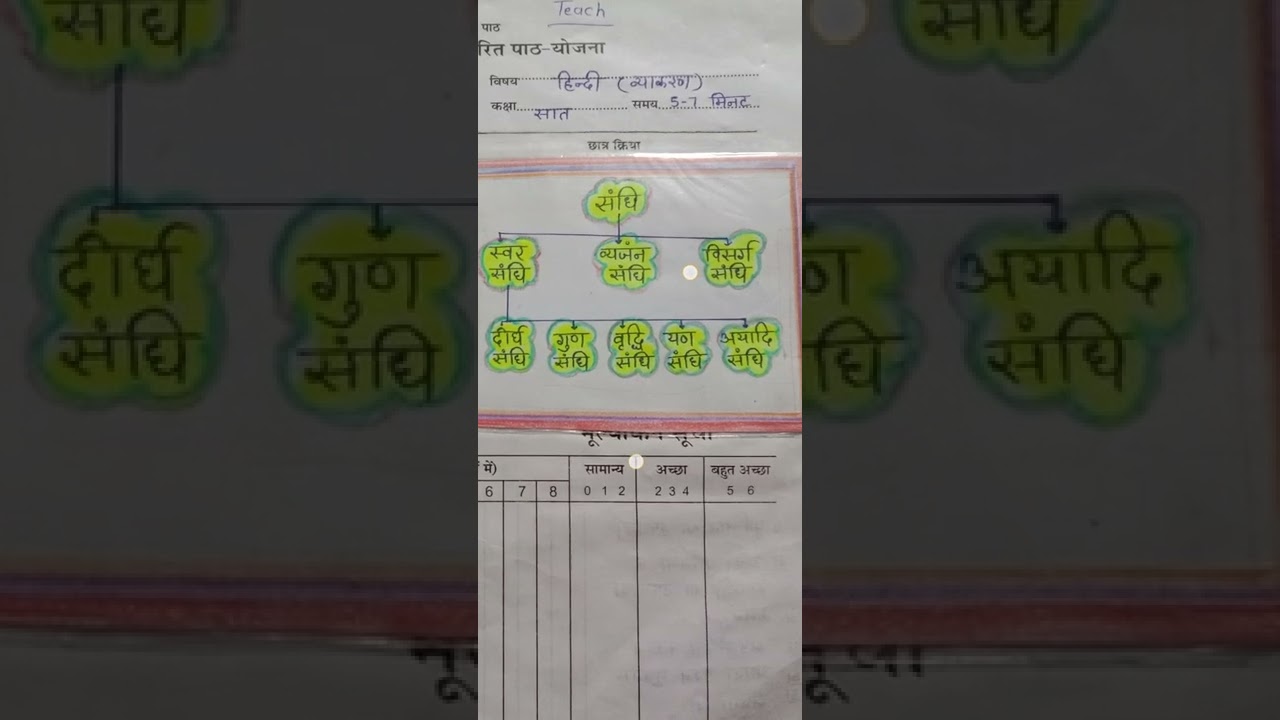 Teach
पाठ
रित पाठ-योजना
विषय हिन्दी (व्याकरण)
कक्षा सात समय 5-7 मिनट
छात्र क्रिया
संधि
स्वर संधि व्यजंन संधि विसर्ग संधि
दीर्घ संधि गुण संधि वृद्धि संधि यण संधि अयादि संधि
में) सामान्य अच्छा बहुत अच्छा
6 7 8 0 1 2 2 3 4 5 6